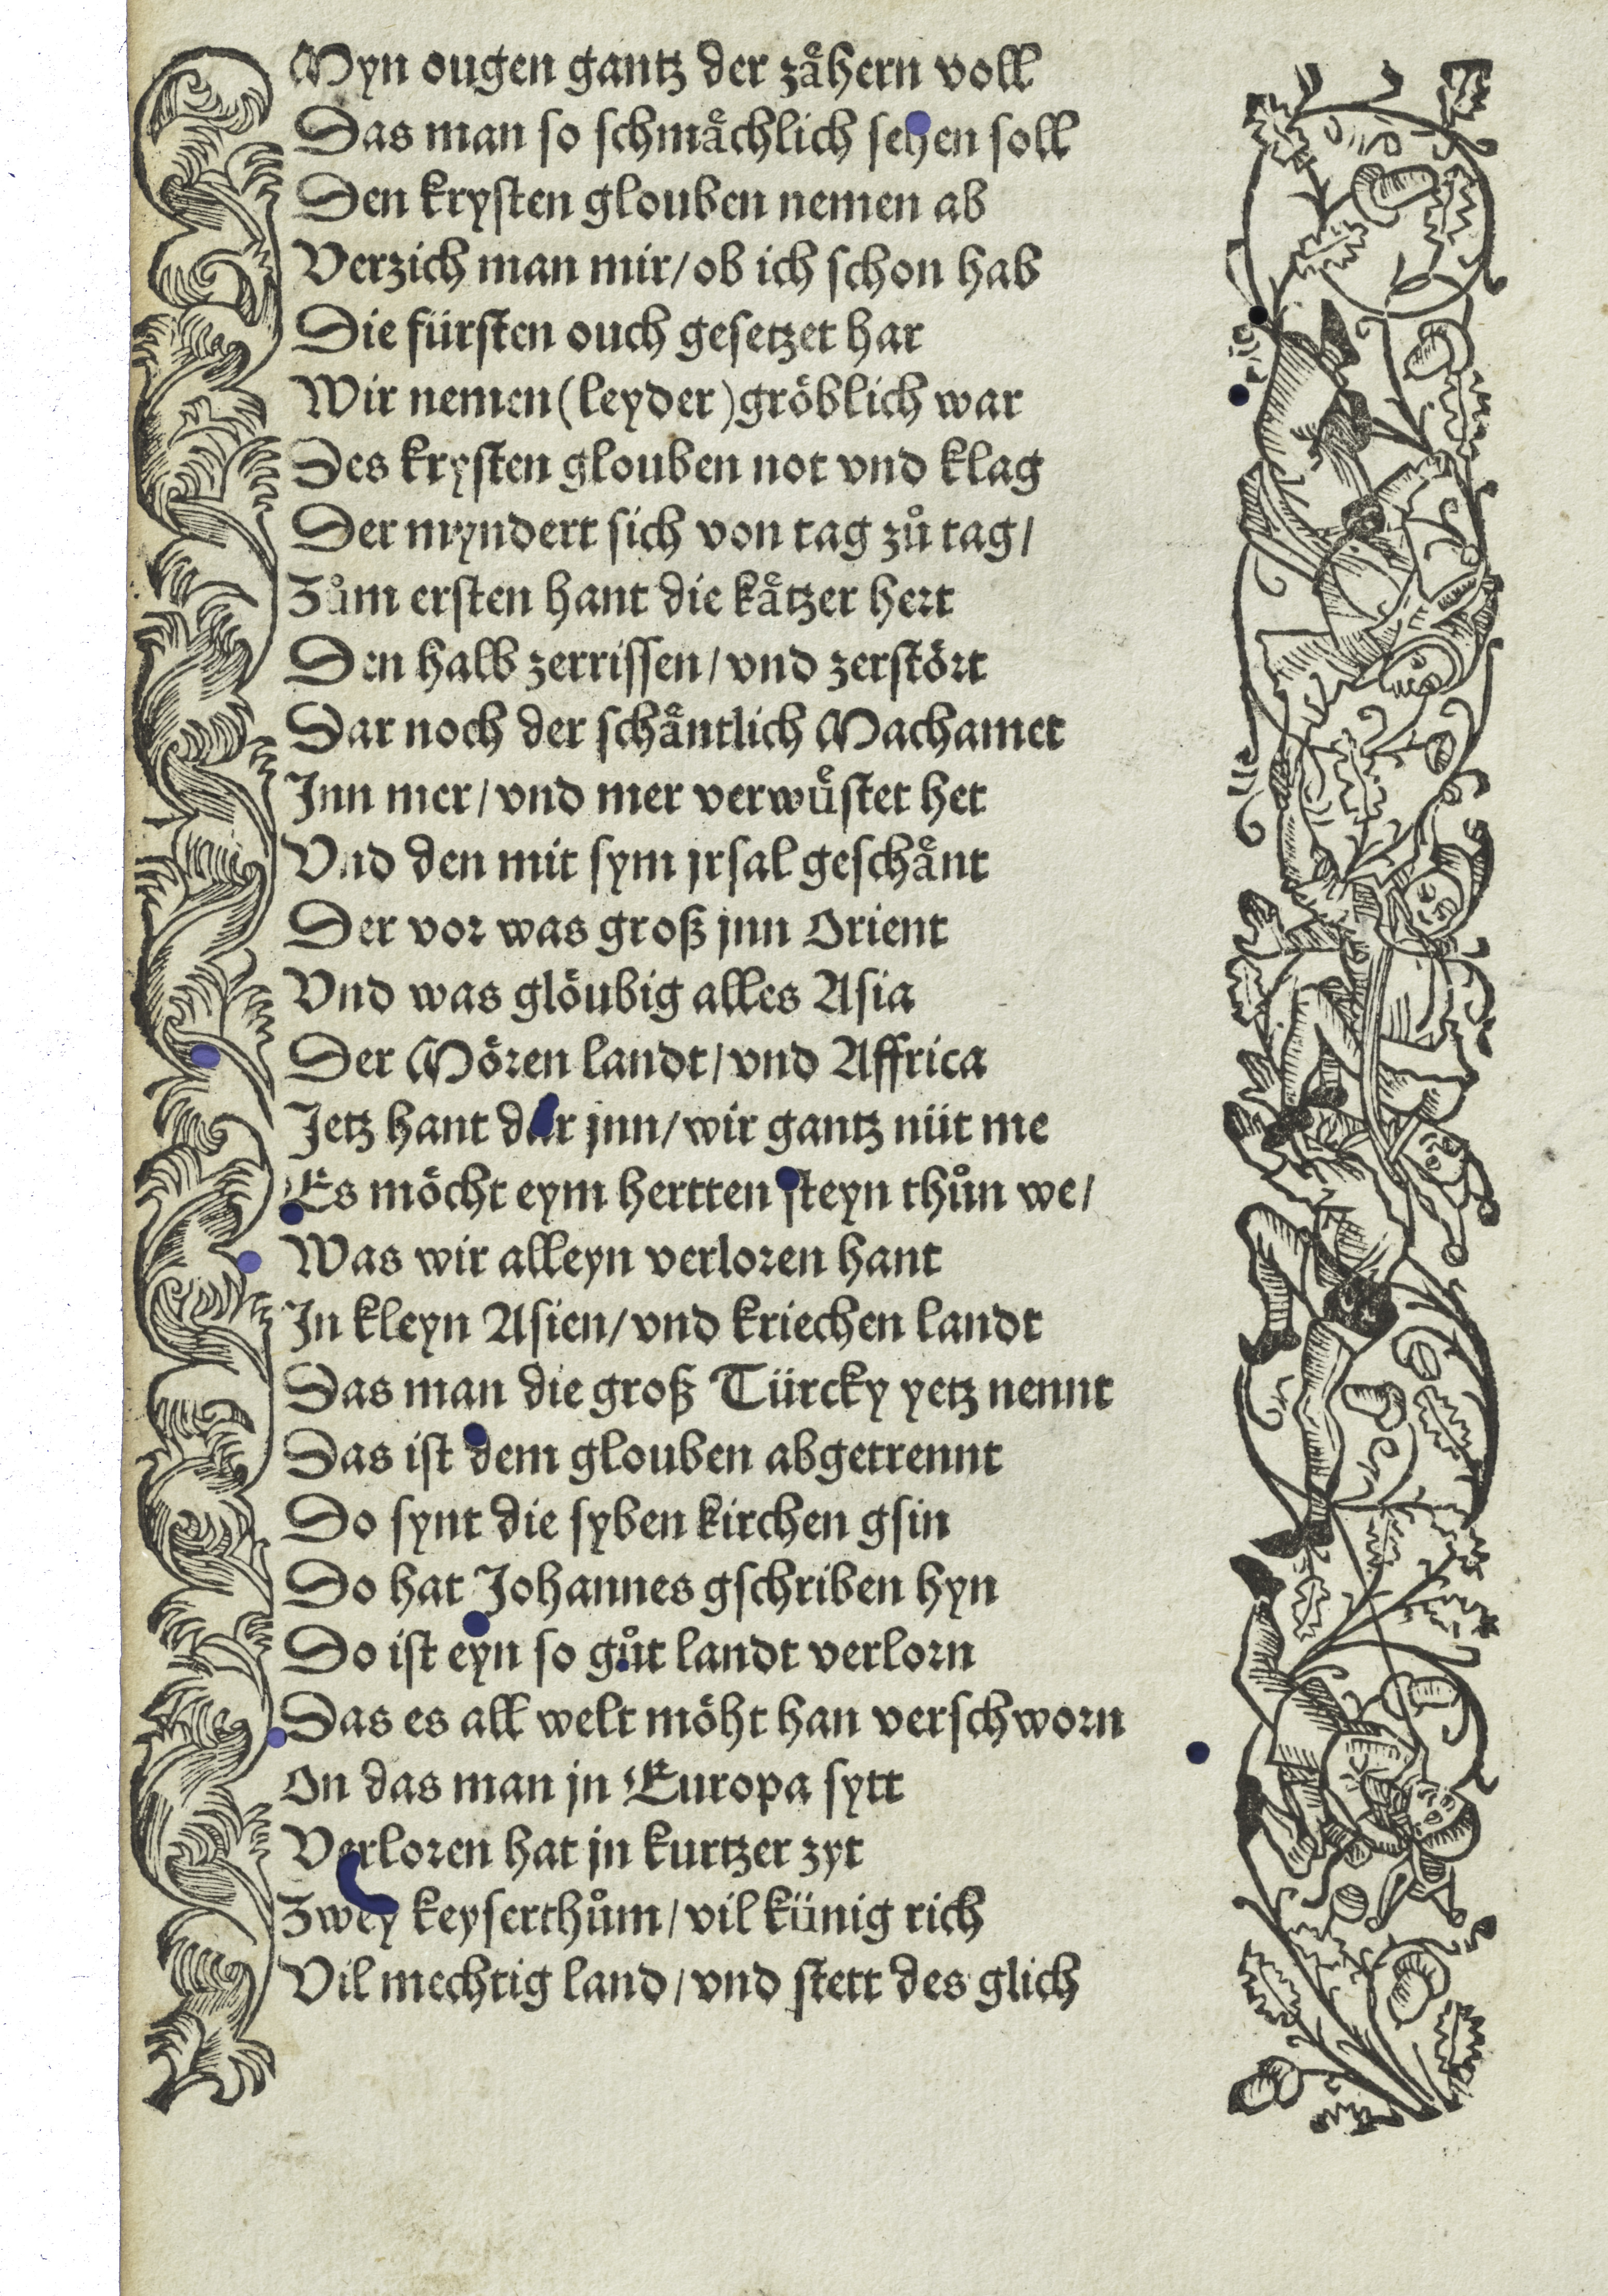 Myn ougen gantz der zaͤhern voll
Das man so schmaͤchlich sehen soll
Den krysten glouben nemen ab
Verzich man mir/ ob ich schon hab
Die fürsten ouch gesetzet har
Wir nemen (leyder) gröblich war
Des krysten glouben not vnd klag
Der myndert sich von tag zuͦ tag/
Zuͦm ersten hant die kaͤtzer hert
Den halb zerrissen/ vnd zerstört
Dar noch der schaͤntlich Machamet
Inn mer/ vnd mer verwuͤstet het
Vnd den mit sym jrsal geschaͤnt
Der vor was groß jnn Orient
Vnd was glöubig alles Asia
Der Mören landt/ vnd Affrica
Jetz hant dar jnn/ wir gantz nüt me
Es möcht eym hertten steyn thuͦn we/
Was wir alleyn verloren hant
In kleyn Asien/ vnd kriechen landt
Das man die groß Türcky yetz nennt
Das ist dem glouben abgetrennt
Do synt die syben kirchen gsin
Do hat Johannes gschriben hyn
Do ist eyn so guͦt landt verlorn
Das es all welt möht han verschworn
On das man jn Europa sytt
Verloren hat jn kurtzer zyt
Zwey keyserthuͦm/ vil künig rich
Vil mechtig land/ vnd stett des glich